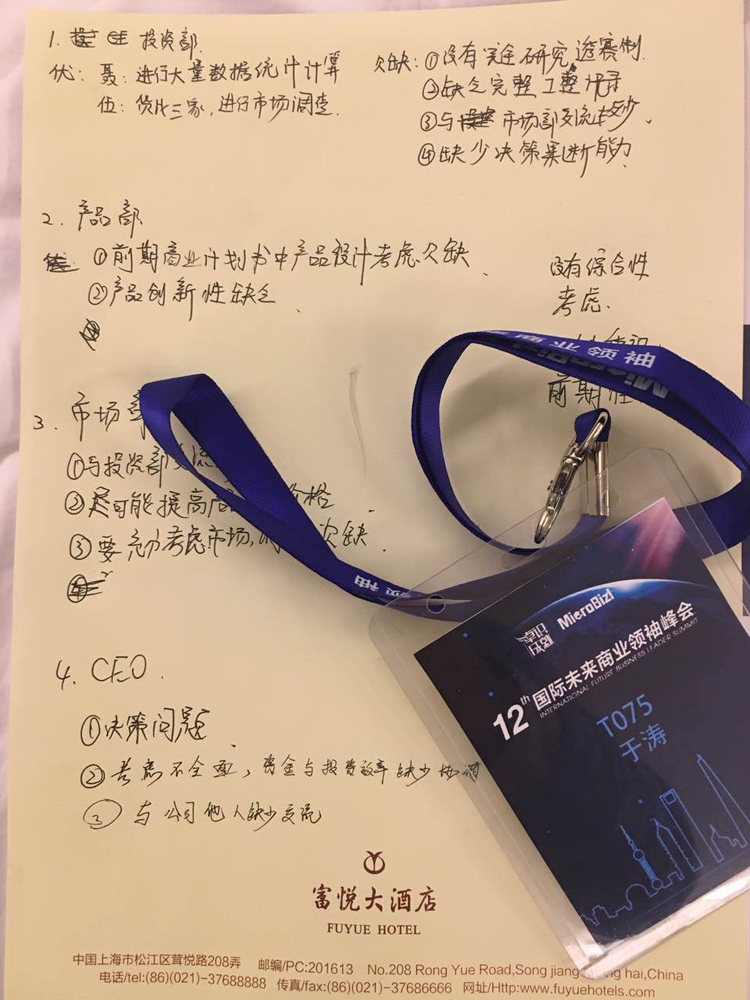 1. 投资部
优: 聂: 进行大量数据统计计算
伍: 货比三家, 进行市场调查.
欠缺: ①没有完全研究透赛制
②缺乏完整工整
③与市场部交流较少.
④缺少决策果断能力
2. 产品部
①前期商业计划书中产品设计考虑欠缺.
②产品创新性缺乏
没有综合性
考虑.
前期
3. 市场
①与投资部交流
②尽可能提高 价格.
③要充分考虑市场, 欠缺.
4. CEO.
①决策问题.
②考虑不全面, 资金与投资效率缺少协调
③ 与公司他人缺少交流
领袖
MicroBiz
领袖
MicroBiz!
12th 国际未来商业领袖峰会
INTERNATIONAL FUTURE BUSINESS LEADER SUMMIT
T075
于涛
富悦大酒店
FUYUE HOTEL
中国上海市松江区茸悦路208弄 邮编/PC:201613 No.208 Rong Yue Road,Song jiang hai,China
电话/tel:(86)(021)-37688888 传真/fax:(86)(021)-37686666 网址/Http:www.fuyuehotels.com